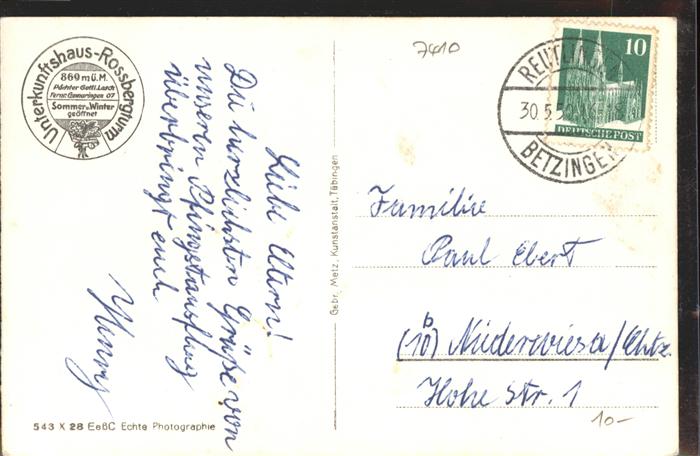 Unterkunftshaus-Rossbergturm
869 m ü. M.
Pächter Gottl. Lasch
Fernr. Gomaringen 07
Sommer u. Winter
geöffnet
Liebe Eltern!
Die herzlichsten Grüße von
unserem Pfingstausflug
überbringt euch
543 X 28 EeßC Echte Photographie
Gebr. Metz, Kunstanstalt, Tübingen
7410
10
DEUTSCHE POST
REUTLIN
30.5.5
BETZINGEN
Familie
Paul Ebert
(10b) Niederwiesa/Chtz.
Hohe Str. 1
10-